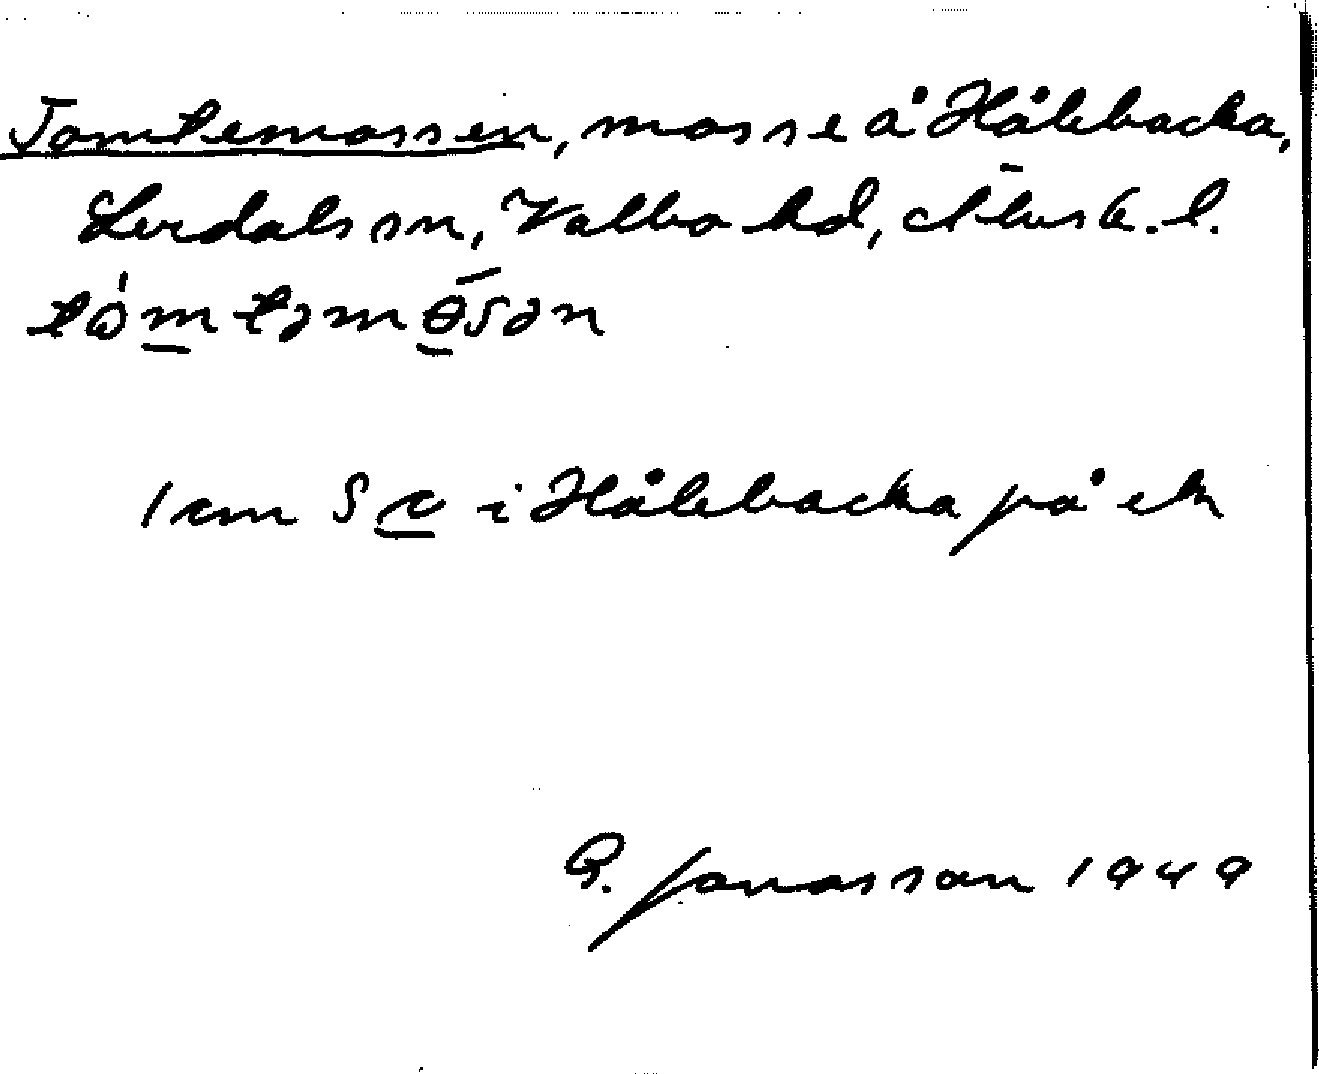 Tomtemossen, mosse å Hålebacka,
Lerdals sn, Valbo hd, Älvsb. l.
tòmtəmɵ́sən
1 cm S c i Hålebacka på ek
G. Jonasson 1949